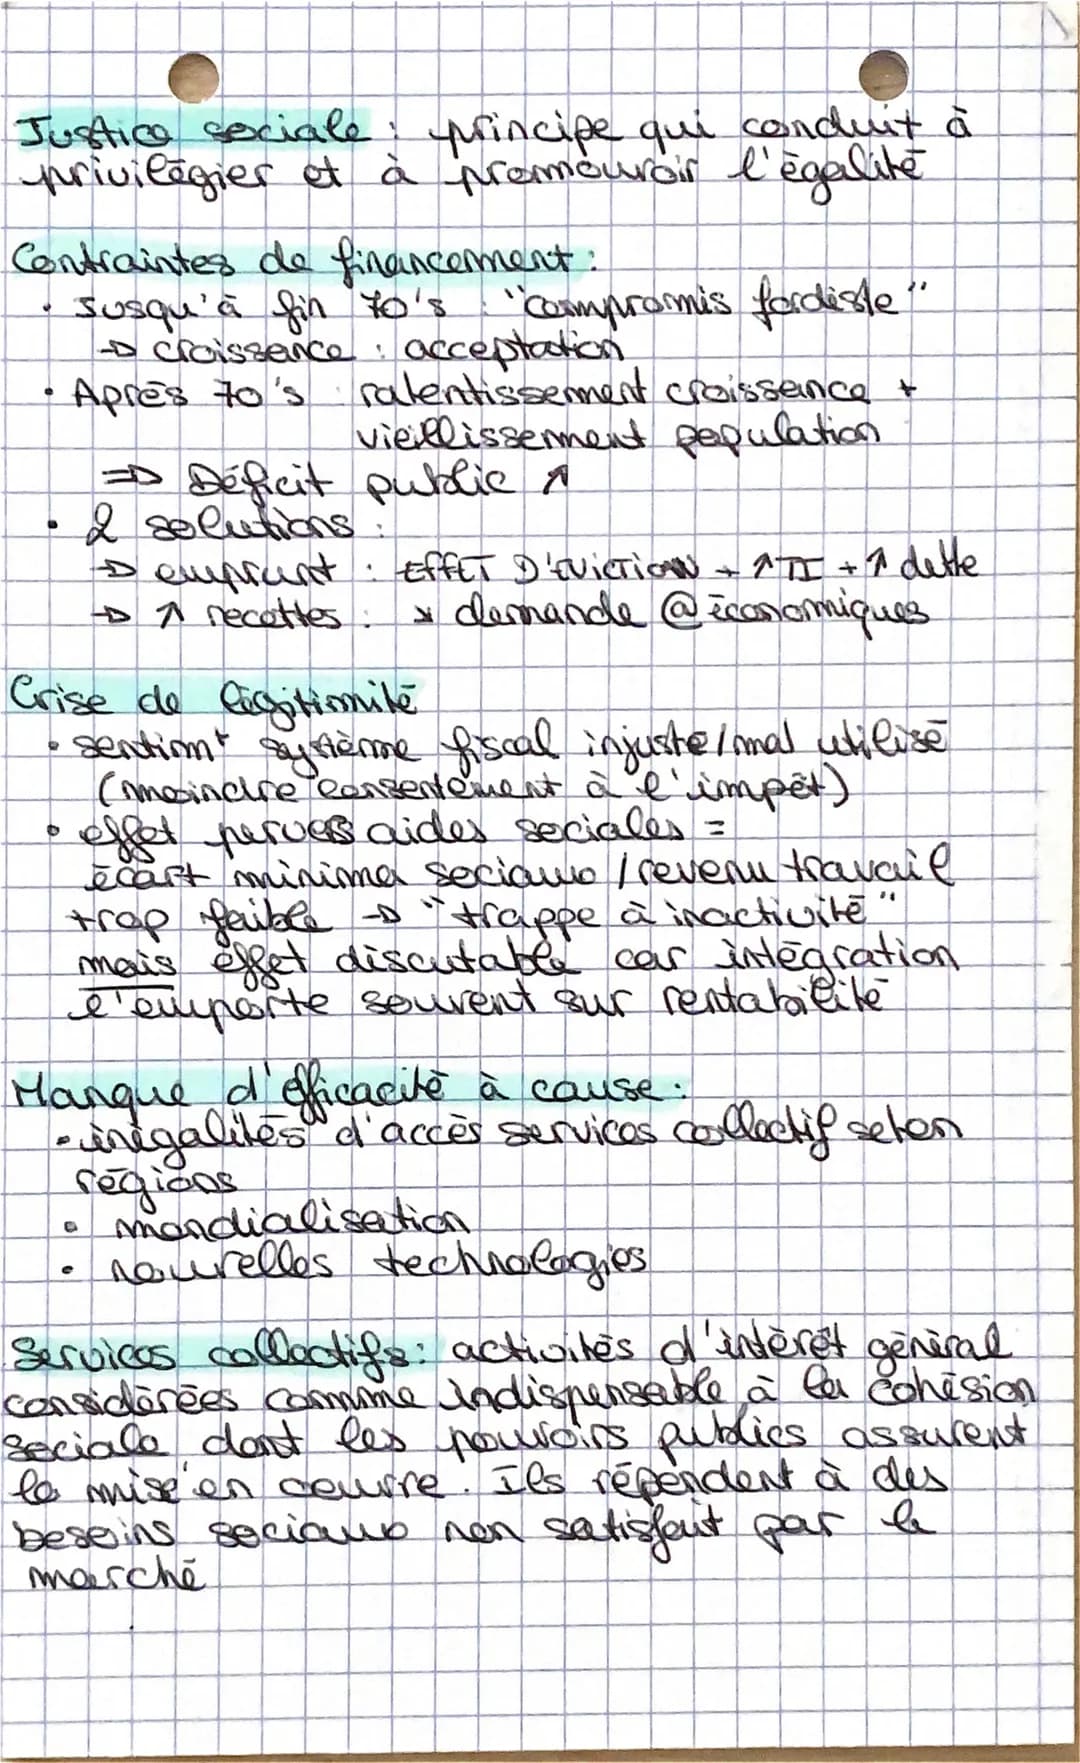 Justice sociale : principe qui conduit à
privilégier et à promouvoir l'égalité
Contraintes de financement :
• Jusqu'à fin 70's : "compromis fordiste"
→ croissance : acceptation
• Après 70's : ralentissement croissance +
vieillissement population
⇒ Déficit public ↗
• 2 solutions :
→ emprunt : EFFET D'ÉVICTION + ↗ TI + ↗ dette
→ ↗ recettes : ↘ demande @ économiques
Crise de légitimité
• sentimt système fiscal injuste/mal utilisé
(moindre consentement à l'impôt)
• effet pervers aides sociales =
écart minima sociaux / revenu travail
trop faible → "trappe à inactivité"
mais effet discutable car intégration
l'emporte souvent sur rentabilité
Manque d'efficacité à cause :
• inégalités d'accès services collectif selon
régions
• mondialisation
• nouvelles technologies
Services collectifs : activités d'intérêt général
considérées comme indispensable à la cohésion
sociale dont les pouvoirs publics assurent
la mise en oeuvre. Ils répondent à des
besoins sociaux non satisfait par le
marché